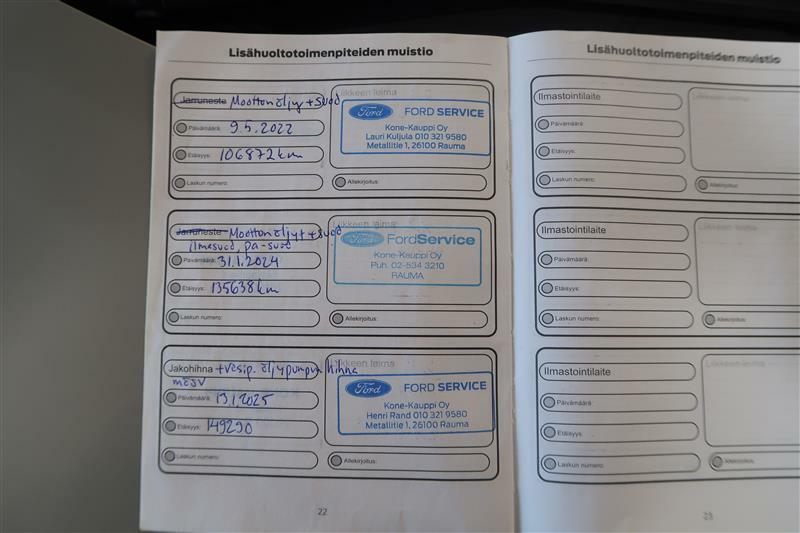 Lisähuoltotoimenpiteiden muistio
Jarruneste Moottoriöljy + suod
Liikkeen leima
Päivämäärä: 9.5.2022
Etäisyys: 106872 km
Laskun numero:
Ford FORD SERVICE
Kone-Kauppi Oy
Lauri Kuljula 010 321 9580
Metallitie 1, 26100 Rauma
Allekirjoitus:
Jarruneste Moottoriöljyt + suod
ilmasuod, pa-suod
Liikkeen leima
Päivämäärä: 31.1.2024
Etäisyys: 135638 km
Laskun numero:
Ford FordService
Kone-Kauppi Oy
Puh. 02-534 3210
RAUMA
Allekirjoitus:
Jakohihna + vesip. öljypumpun hihna
Liikkeen leima
Päivämäärä: 13.1.2025
Etäisyys: 149290
Laskun numero:
Ford FORD SERVICE
Kone-Kauppi Oy
Henri Rand 010 321 9580
Metallitie 1, 26100 Rauma
Allekirjoitus:
22
Lisähuoltotoimenpiteiden muistio
Ilmastointilaite
Liikkeen leima
Päivämäärä:
Etäisyys:
Laskun numero:
Allekirjoitus:
Ilmastointilaite
Liikkeen leima
Päivämäärä:
Etäisyys:
Laskun numero:
Allekirjoitus:
Ilmastointilaite
Liikkeen leima
Päivämäärä:
Etäisyys:
Laskun numero:
Allekirjoitus:
23